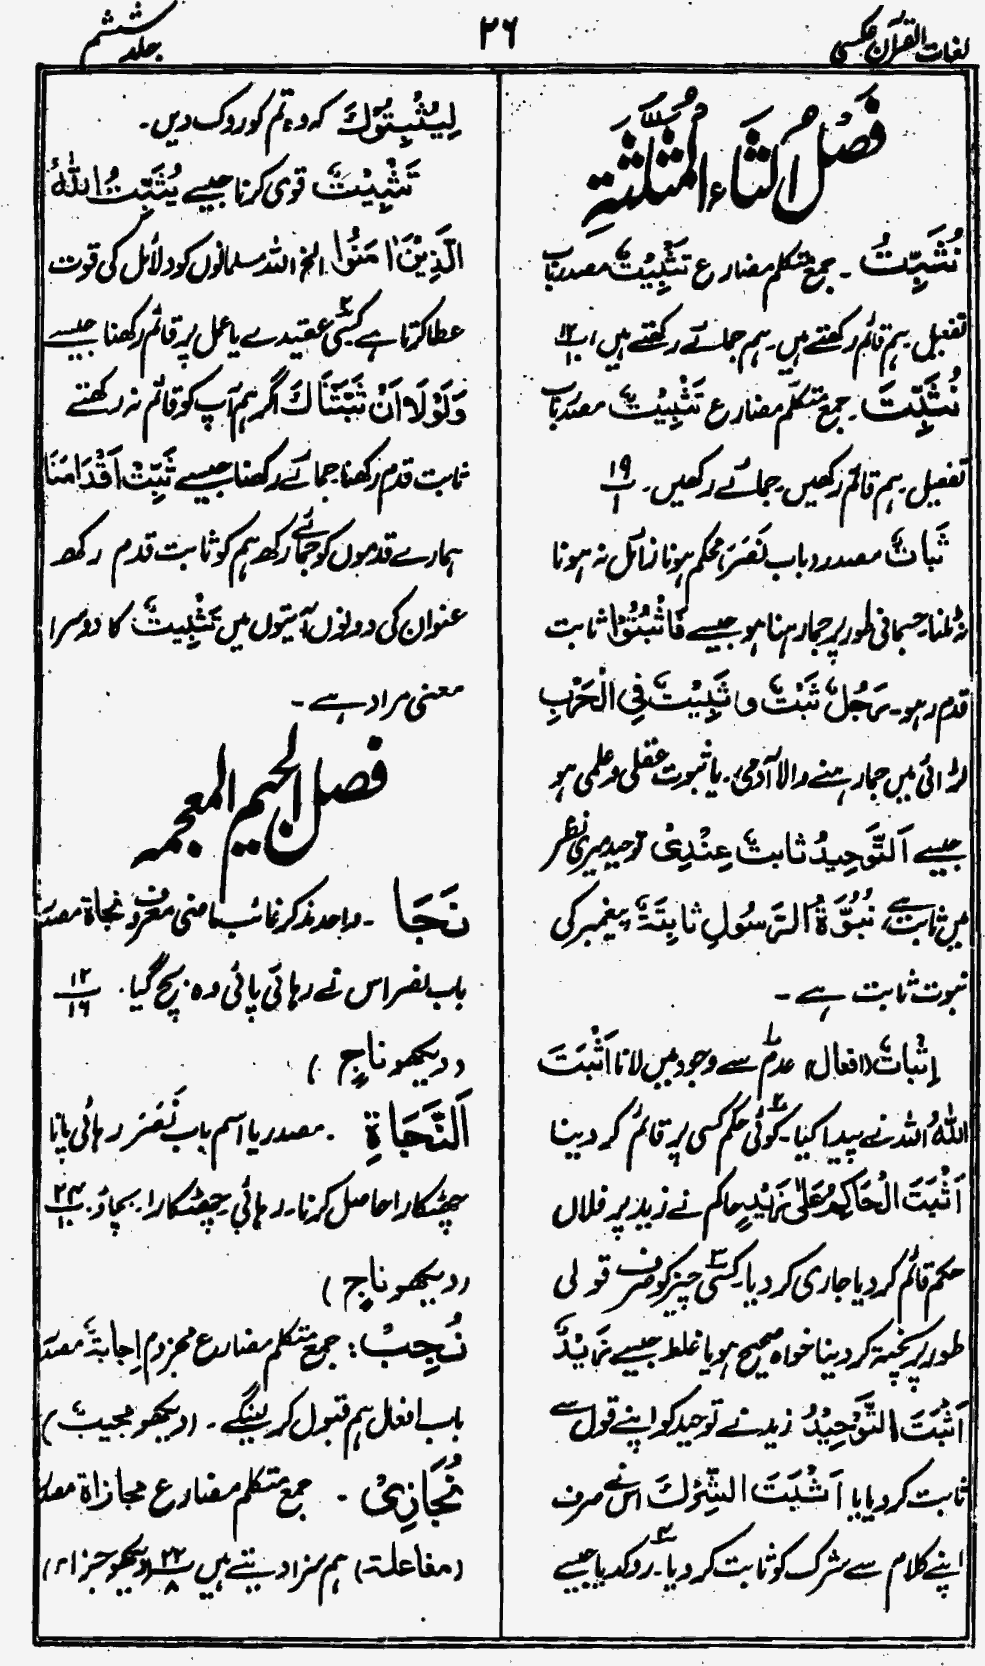 لغات القرآن عکسی
۲۶
جلد ششم
فصل الثاء المثلثة
نُثَبِّتُ ۔ جمع متکلم مضارع تَثْبِیْتٌ مصدر باب
تفعیل ہم قائم رکھتے ہیں۔ ہم جمائے رکھتے ہیں ۱۲
نُثَبِّتَ ۔ جمع متکلم مضارع تَثْبِیْتٌ مصدر باب
تفعیل۔ ہم قائم رکھیں۔ جمائے رکھیں۔ ۱۹
ثَبَاتٌ مصدر دباب نَصَرَ، محکم ہونا زائل نہ ہونا
نہ ٹلنا۔ جسمانی طور پر جمار ہنا ہو جیسے فَاثْبُتُوْا ثابت
قدم رہو۔ رَجُلٌ ثَبْتٌ و ثَبِیْتٌ فِی الْحَرْبِ
لڑائی میں جمار ہنے والا آدمی، یا ثبوت عقلی و علمی ہو
جیسے اَلتَّوْحِیدُ ثابتٌ عِنْدِیْ توحید میری نظر
میں ثابت ہے، نُبُوَّۃُ الرَّسُولِ ثابِتَۃٌ پیغمبر کی
نبوت ثابت ہے ۔
اِثباتٌ (افعال) عدم سے وجود میں لانا اَثْبَتَ
اللّٰهُ اللہ نے پیدا کیا۔ کوئی حکم کسی پر قائم کر دینا
اَثْبَتَ الْحَاکِمُ عَلٰی زَیْدٍ حاکم نے زید پر فلاں
حکم قائم کر دیا جاری کر دیا۔ کسی چیز کو صرف قولی
طور پر پختہ کر دینا خواہ صحیح ہو یا غلط جیسے زَیْدٌ
اَثْبَتَ التَّوْحِیْدَ زید نے توحید کو اپنے قول سے
ثابت کر دیا یا اَثْبَتَ الشِّرْكَ اس نے صرف
اپنے کلام سے شرک کو ثابت کر دیا۔ روکدیا جیسے
لِیُثْبِتُوْكَ کہ وہ تم کو روک دیں ۔
تَثْبِیْتٌ قوی کرنا جیسے یُثَبِّتُ اللّٰهُ
الَّذِیْنَ اٰمَنُوْا الخ اللہ مسلمانوں کو دلائل کی قوت
عطا کرتا ہے کسی عقیدے یا عمل پر قائم رکھنا جیسے
وَلَوْلَا اَنْ ثَبَّتْنَاكَ اگر ہم آپ کو قائم نہ رکھتے
ثابت قدم رکھنا۔ جمائے رکھنا جیسے ثَبِّتْ اَقْدَامَنَا
ہمارے قدموں کو جمائے رکھ ہم کو ثابت قدم رکھ
عنوان کی دونوں آیتوں میں تَثْبِیتٌ کا دوسرا
معنی مراد ہے ۔
فصل الجیم المعجمہ
نَجَا ۔ واحد مذکر غائب ماضی معروف نجاة مصدر
باب نصر اس نے رہائی پائی وہ بچ گیا ۔ ۱۲ ۱۶
(دیکھو ناجٍ)
اَلنَّجَاةِ ۔ مصدر یا اسم باب نَصَرَ رہائی پانا
چھٹکارا حاصل کرنا۔ رہائی، چھٹکارا۔ بچاؤ۔ ۲۴ ۱۰
(دیکھو ناجٍ)
نُجِبْ: جمع متکلم مضارع مجزوم اِجابۃٌ مصدر
باب افعال ہم قبول کر لینگے ۔ (دیکھو مجیبٌ)
نُجَازِیْ ۔ جمع متکلم مضارع مجازاة مصدر
(مفاعلة) ہم سزا دیتے ہیں ۲۲ ۸ (دیکھو جزاء)